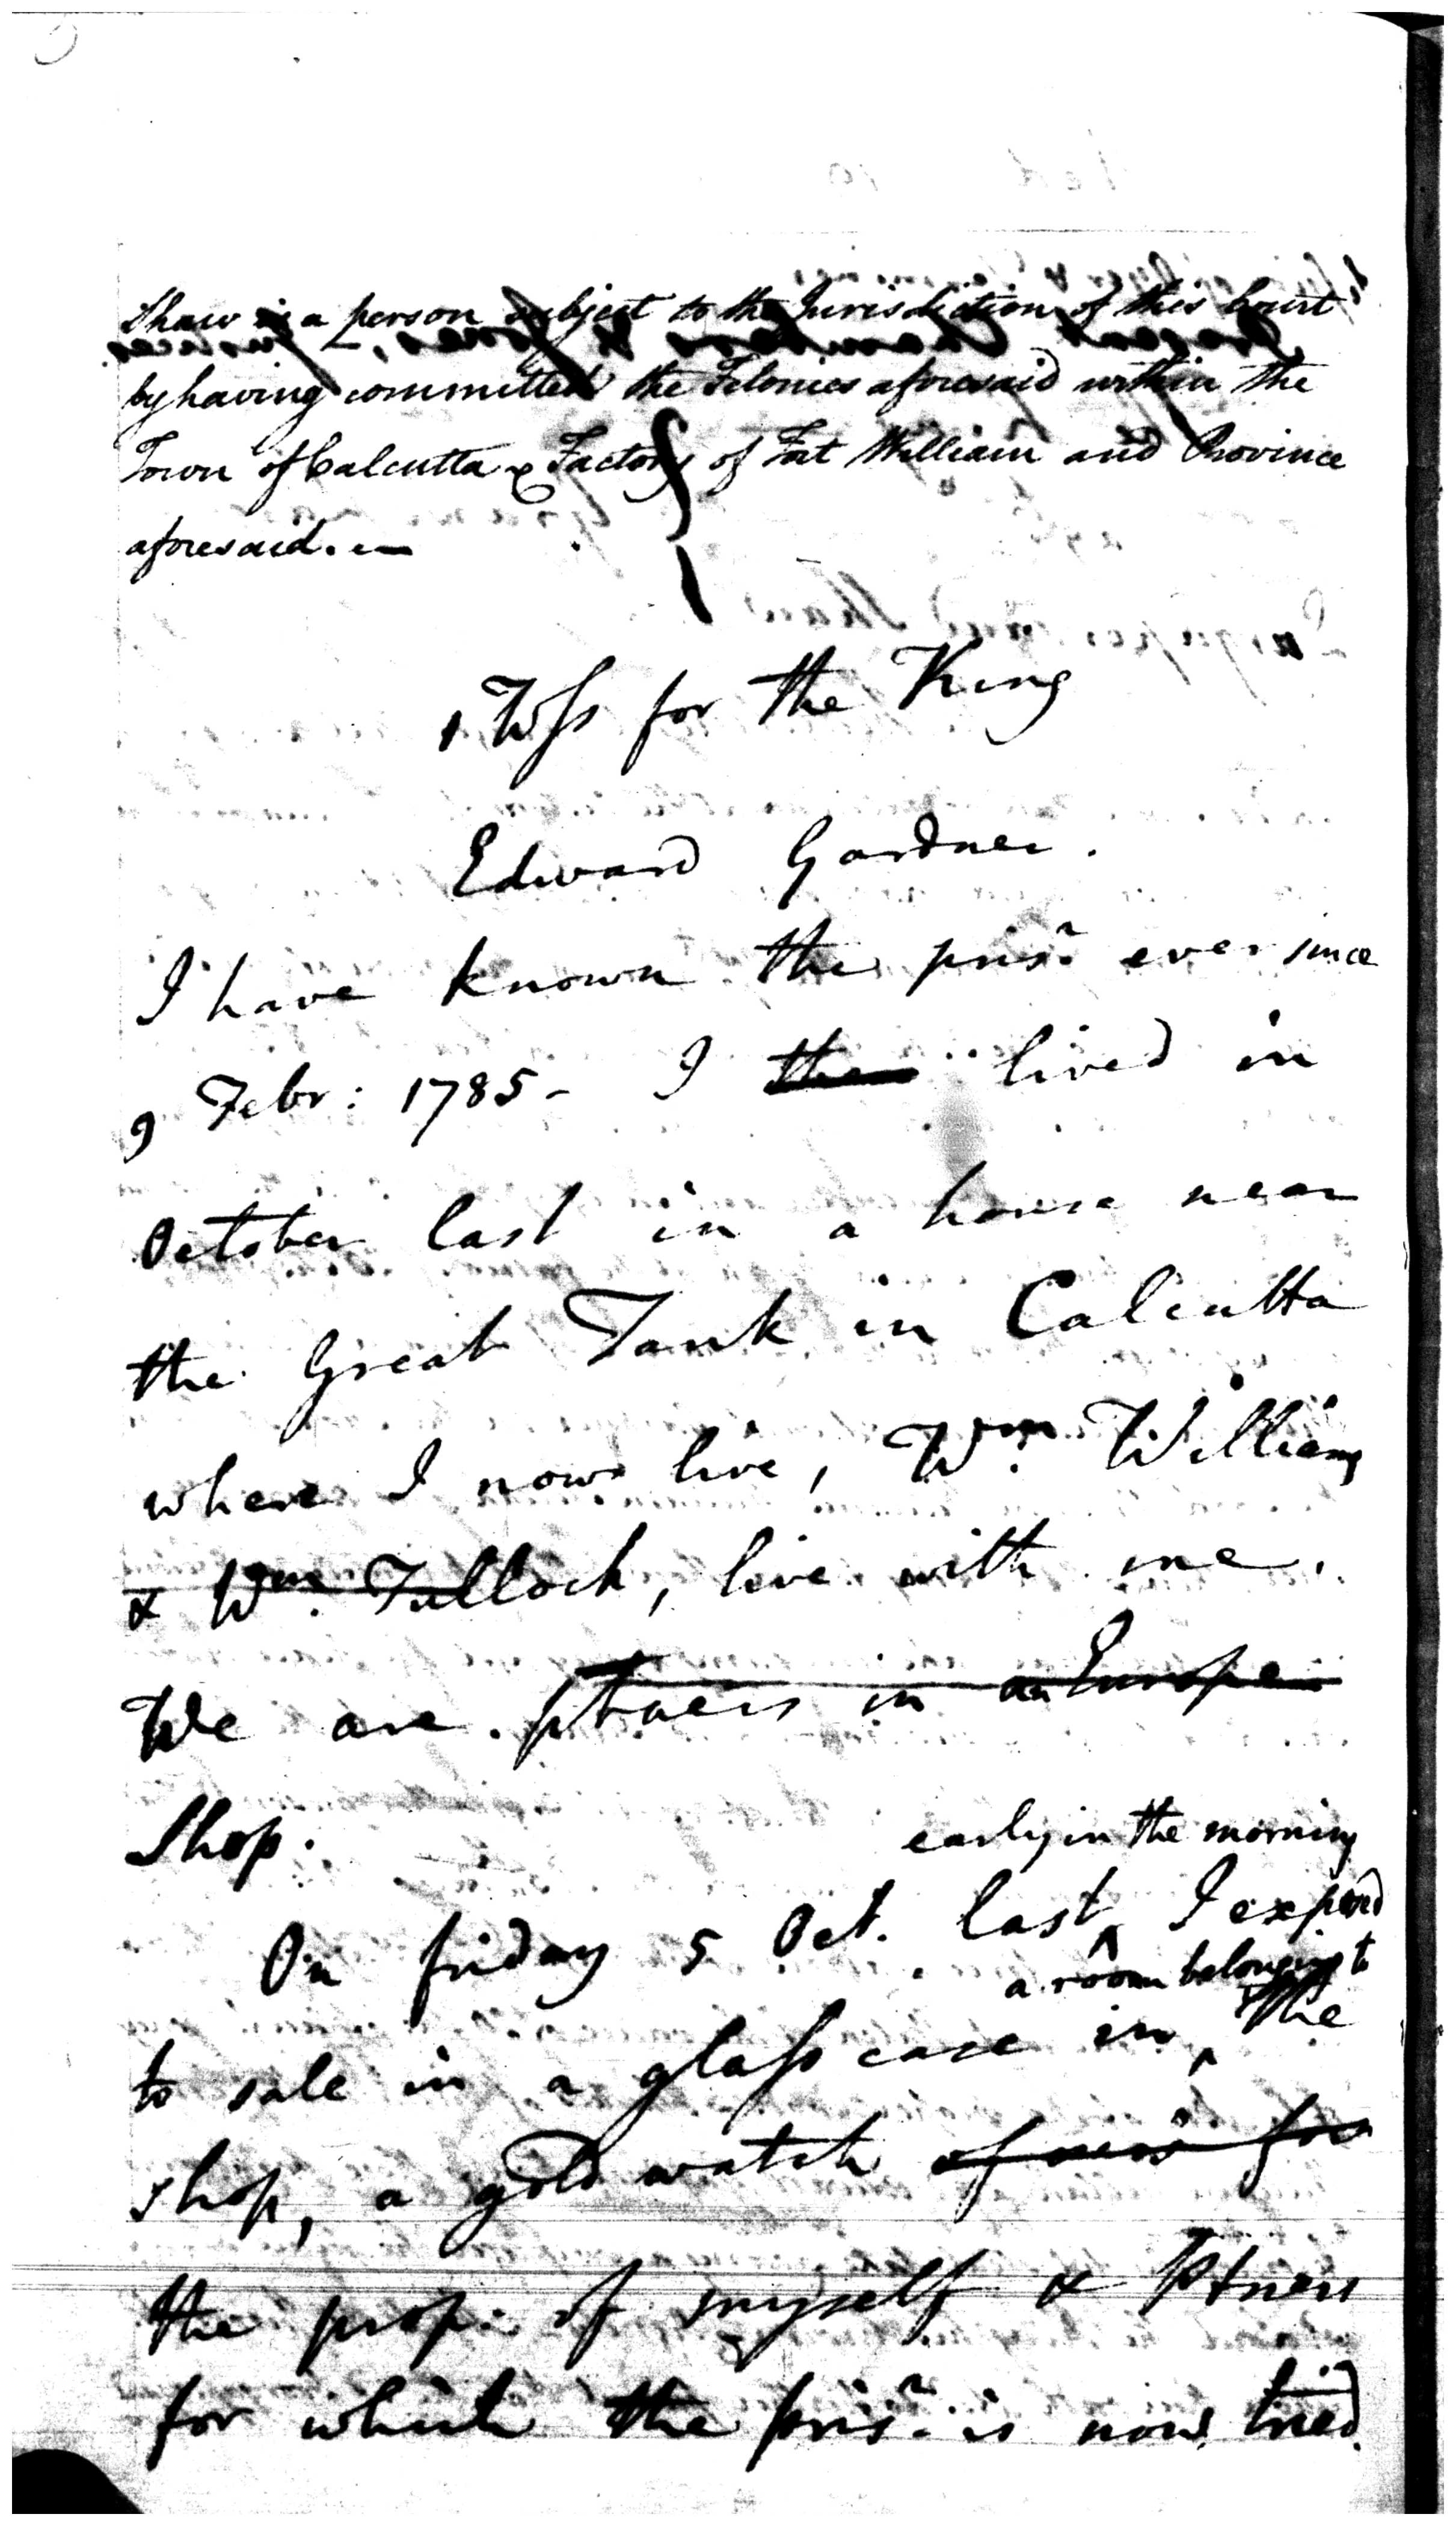 Shaw is a person subject to the Jurisdiction of this Court
by having committed the Felonies aforesaid within the
Town of Calcutta & Factory of Fort William and Province
aforesaid.
1 Wss for the King
Edward Gardner.
I have known the prisr ever since
9 Febr: 1785 - I then lived in
October last in a house near
the Great Tank in Calcutta
where I now live, Wm. Williams
& Wm. Tulloch, live with me.
We are ptners in an Europe
Shop.
early in the morning
On friday 5 Oct. last ^ I exposed
a room belonging to
to sale in a glass case in ^ the
shop, a gold watch
the prop: of myself & Ptners
for which the prisr. is now tried.